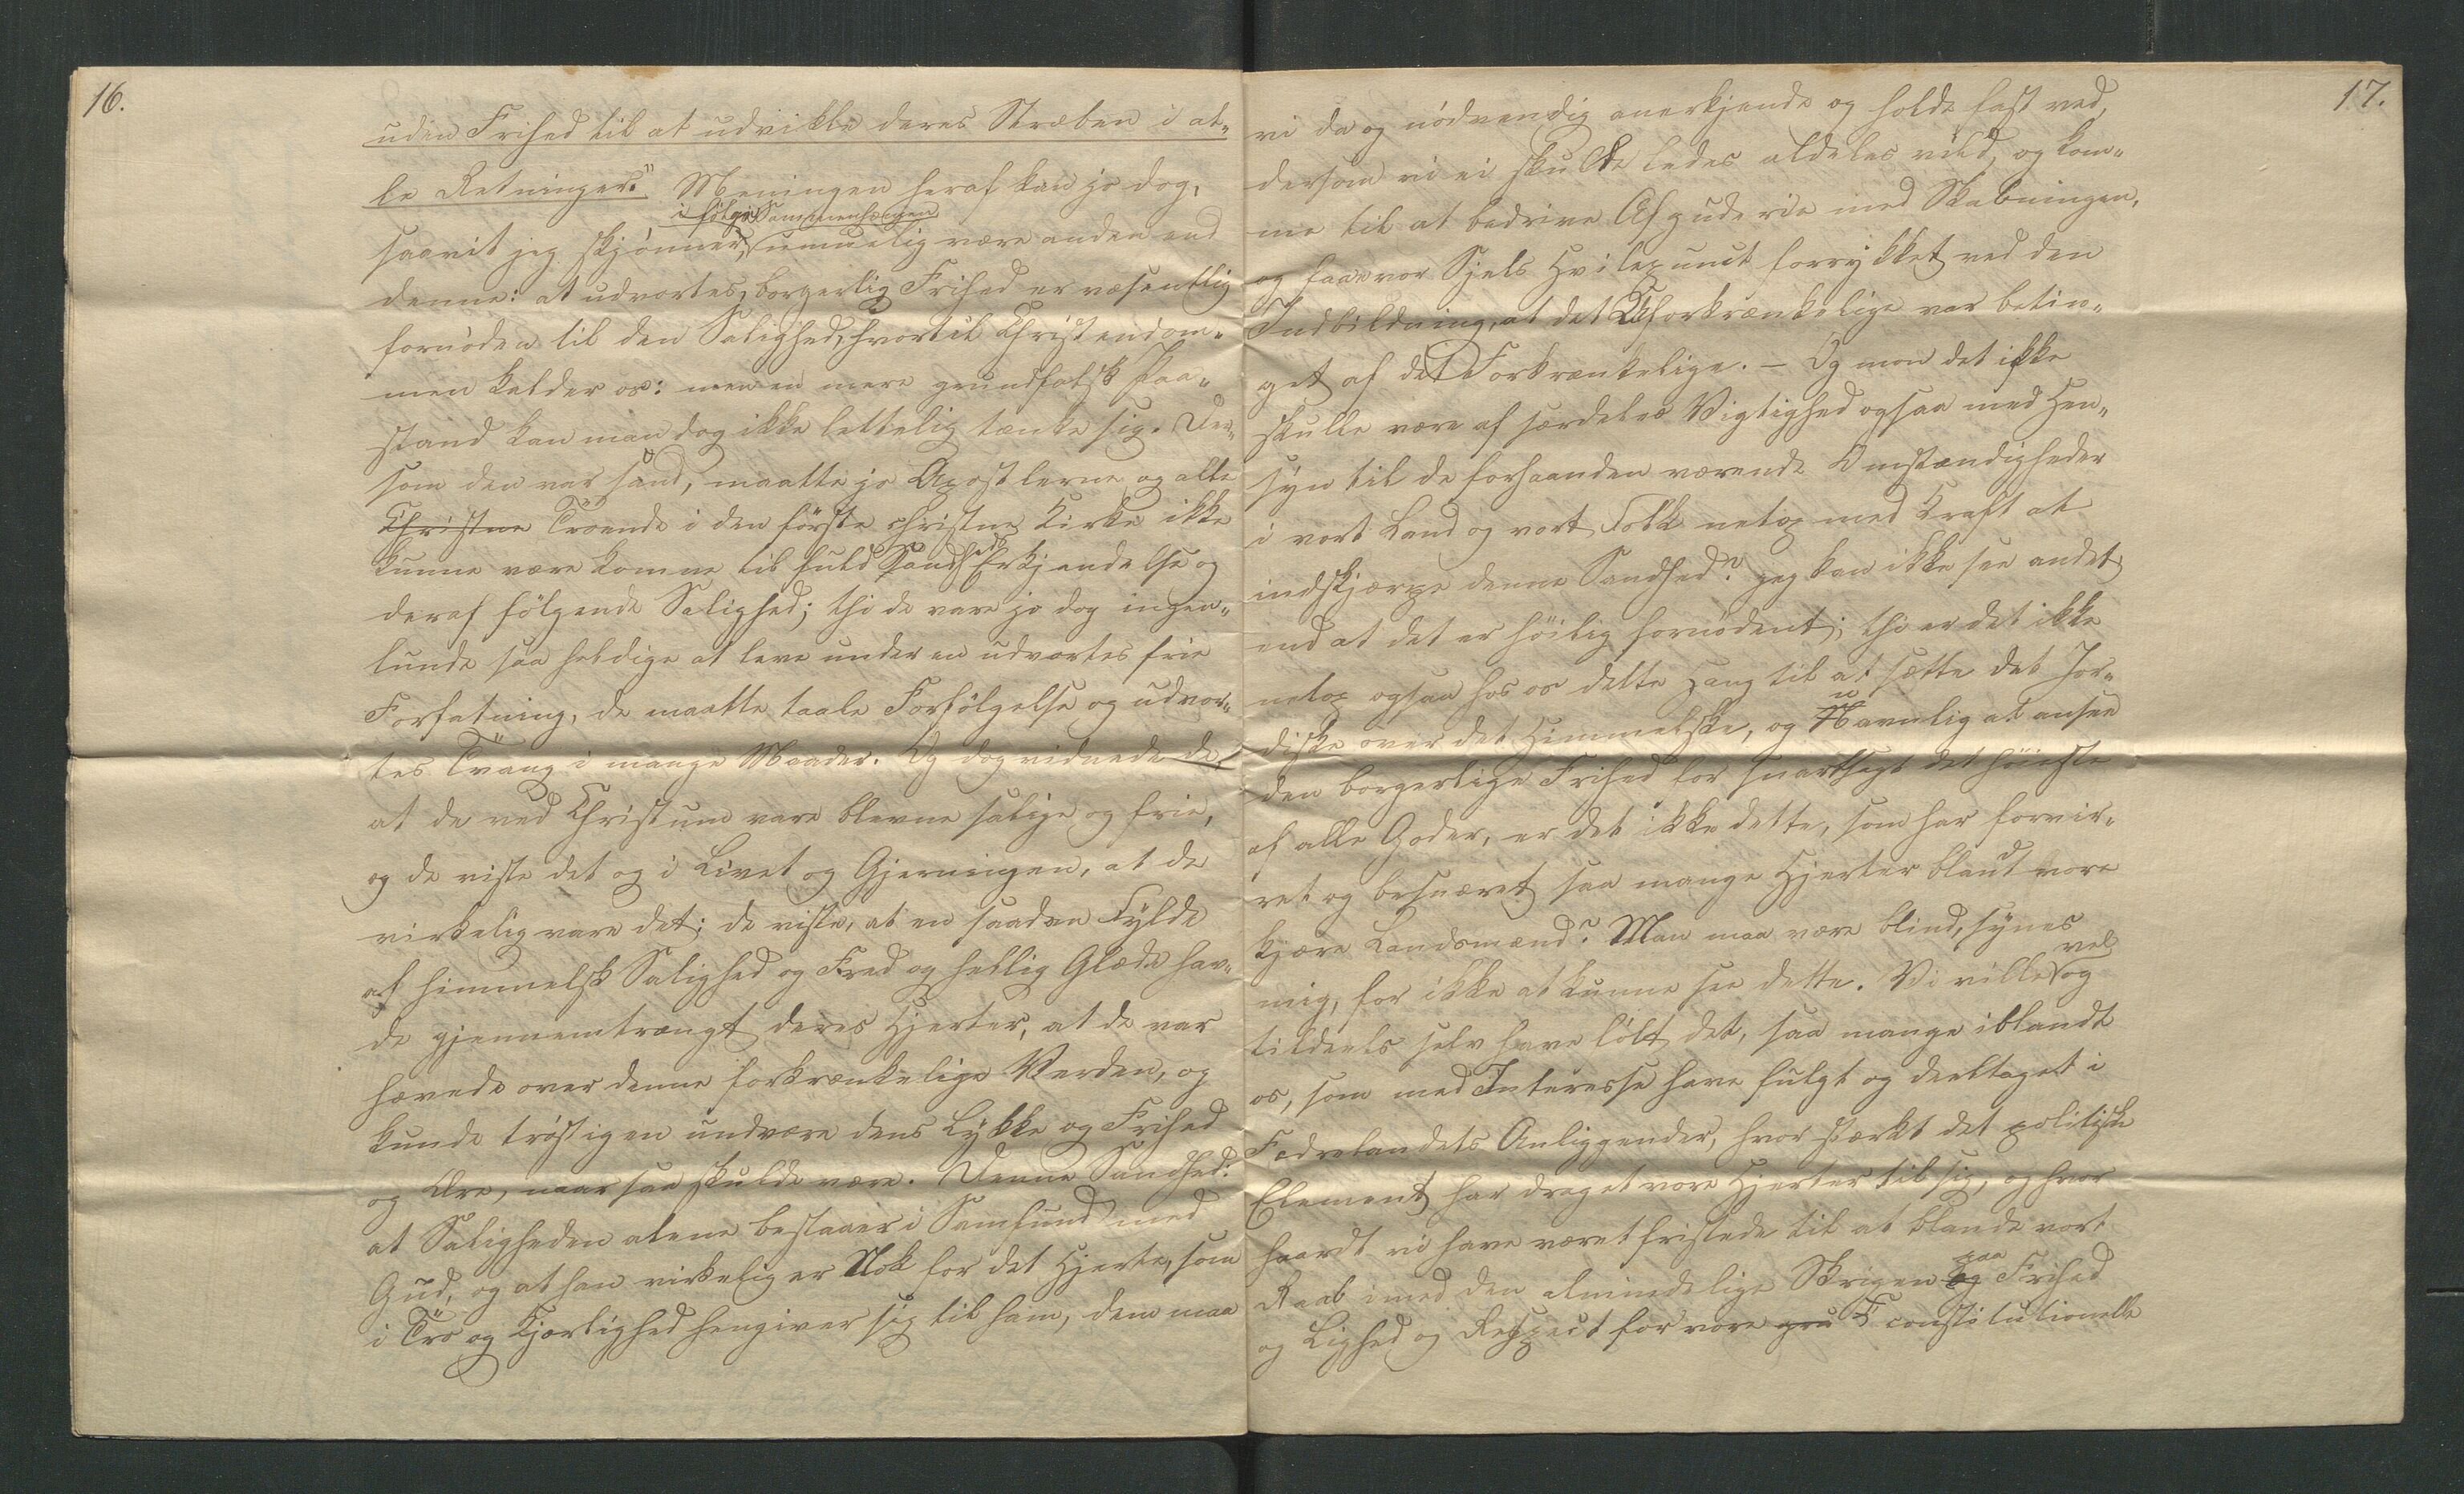 16.
uden Frihed til at udvikle deres Stræben i al-
le Retninger." Meningen heraf kan jo dog,
i følge Sammenhængen
saavit jeg skjønner, umuelig være anden end
denne: at udvortes, borgerlig Frihed er væsentlig
fornøden til den Salighed, hvortil Christendom-
men kalder os: men en mere grundfalsk Paa-
stand kan man dog ikke lettelig tænke sig. Der-
som den var sand, maatte jo Apostlerne og alle
Christne Troende i den første christne Kirke ikke
kunne være komne til fuld Sandheds Erkjendelse og
deraf følgende Salighed; thi de vare jo dog ingen-
lunde saa heldige at leve under en udvortes frie
Forfatning, de maatte taale Forfølgelse og udvor-
tes Tvang i mange Maader. Og dog vidnede de,
at de ved Christum vare blevne salige og frie,
og de viste det og i Livet og Gjerningen, at de
virkelig vare det; de viste, at en saadan Fylde
af himmelsk Salighed og Fred og hellig Glæde hav-
de gjennemtrængt deres Hjerter, at de var
hævede over denne forkrænkelige Verden, og
kunde trøstigen undvære dens Lykke og Frihed
og Ære, naar saa skulde være. Denne Sandhed:
at Saligheden alene bestaaer i Samfund med
Gud, og at han virkelig er Nok for det Hjerte, som
i Tro og Kjærlighed hengiver sig til ham, dem maa
17.
vi da og nødvendig anerkjende og holde fast ved,
dersom vi ei skulde ledes aldeles vild, og kom-
me til at bedrive Afguderie med Skabningen,
og faae vor Sjels Hvilepunct forrykket ved den
Indbildning, at det Uforkrænkelige var betin-
get af det Forkrænkelige. - Og mon det ikke
skulle være af særdeles Vigtighed ogsaa med Hen-
syn til de forhaanden værende Omstændigheder
i vort Land og vort Folk netop med Kraft at
indskjærpe denne Sandhed? jeg kan ikke see andet
end at det er høilig fornødent; thi er det ikke
netop ogsaa hos os dette Hang til at sætte det Jor-
diske over det Himmelske, og navnlig at ansee
den borgerlige Frihed for snartsagt det høieste
af alle Goder, er det ikke dette, som har forvir-
ret og besnæret saa mange Hjerter blandt vore
kjære Landsmænd? Man maa være blind, synes
mig, for ikke at kunne see dette. Vi ville vel og
tildeels selv have følt det, saa mange iblandt
os, som med Interesse have fulgt og deeltaget i
Fædrelandets Anliggender, hvor stærkt det politiske
Element har draget vore Hjerter til sig, og hvor
haardt vi have været fristede til at blande vort
Raab i med den almindelige Skrigen og paa Frihed
og Lighed og Respect for vore gru constitutionelle